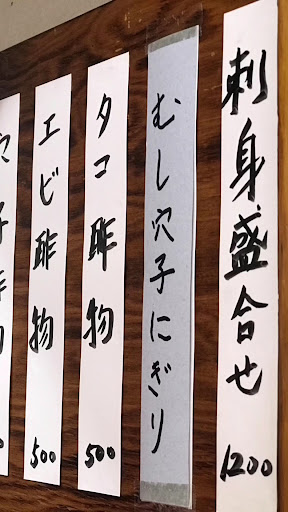 刺身盛合せ 1200
むし穴子にぎり
タコ酢物 500
エビ酢物 500
穴子酢物